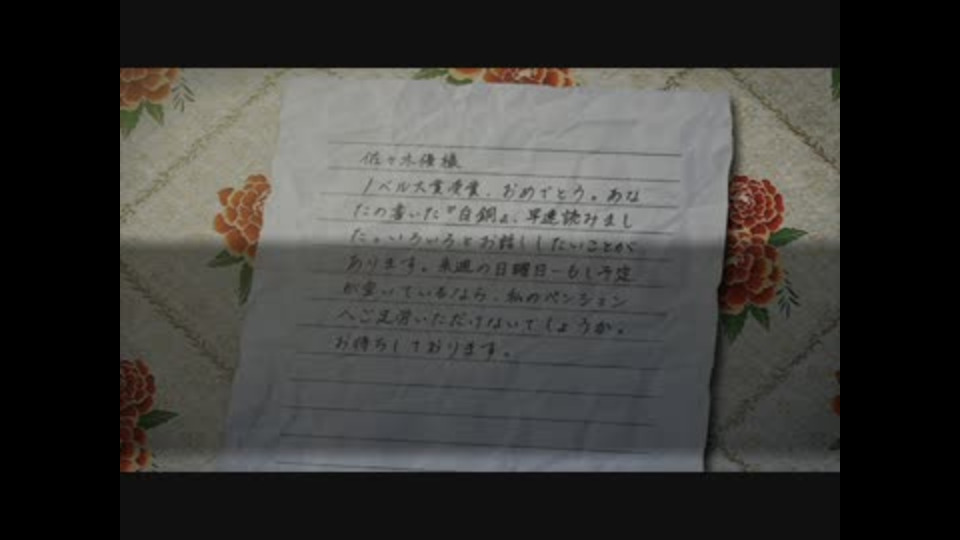 佐々木優様
ノベル大賞受賞、おめでとう。あな
たの書いた『白銅』、早速読みまし
た。いろいろとお話ししたいことが
あります。来週の日曜日ーもし予定
が空いているなら、私のペンション
へご足労いただけないでしょうか。
お待ちしております。